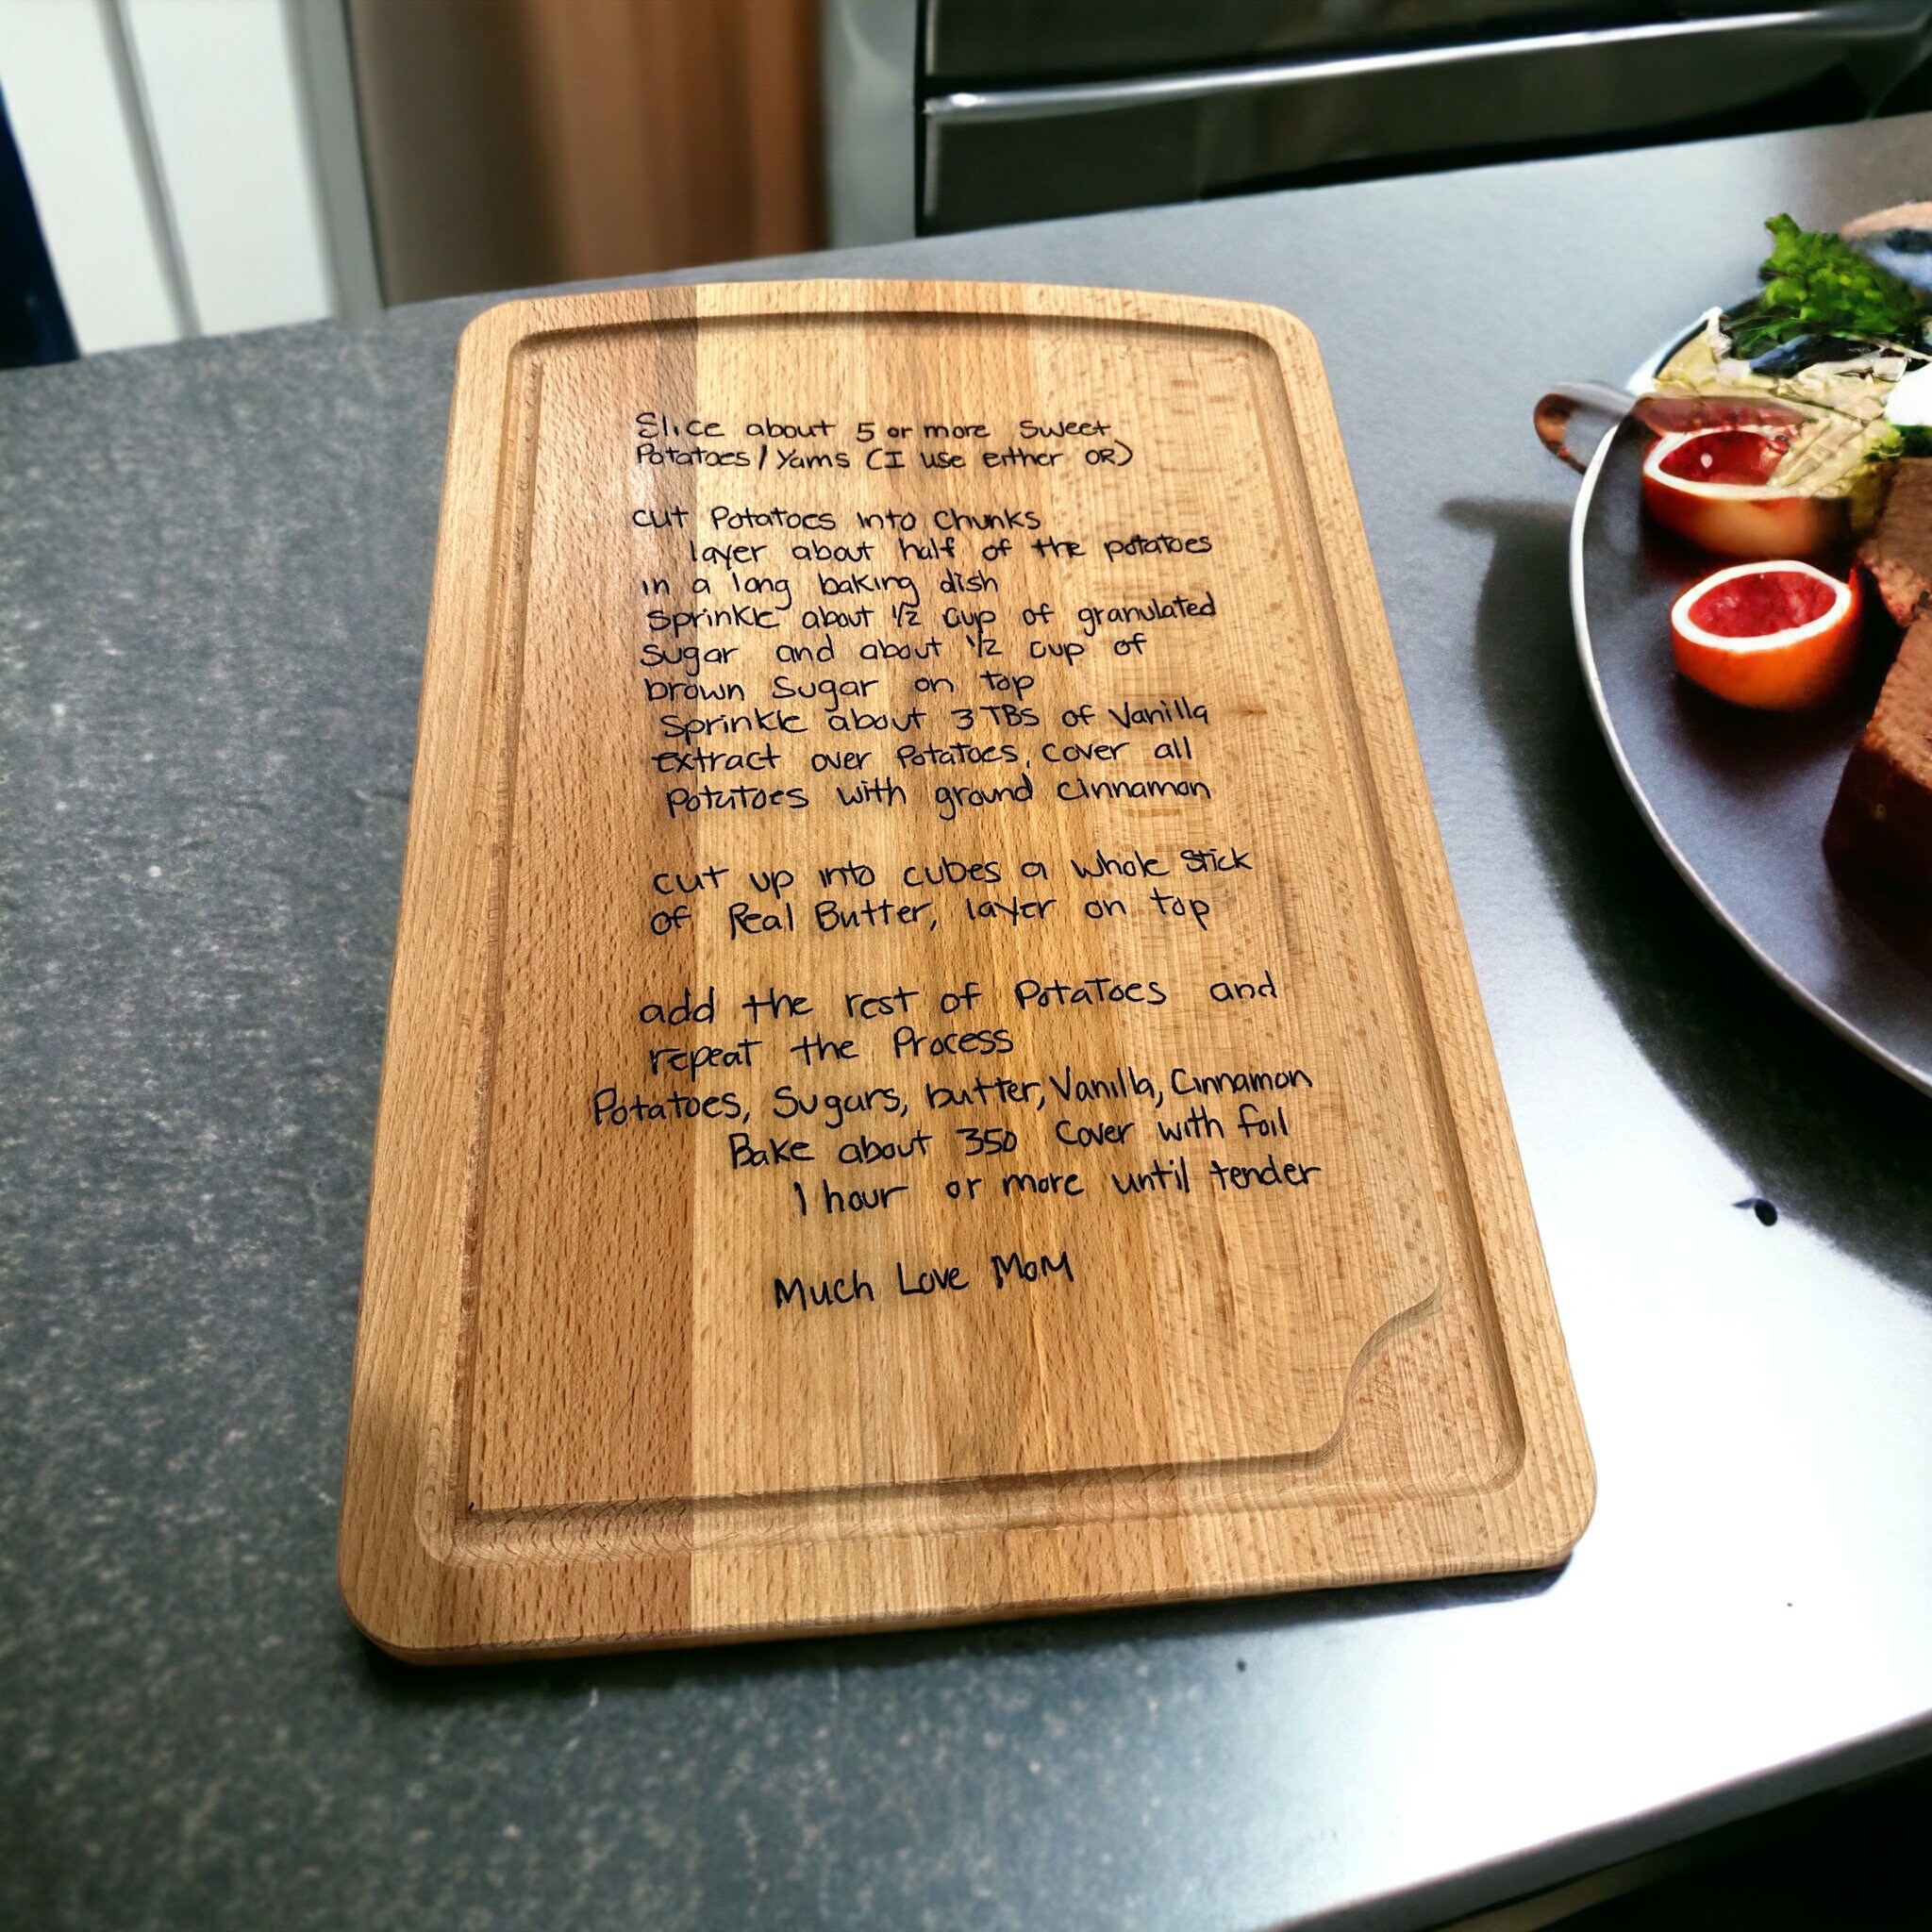 Slice about 5 or more Sweet
Potatoes / Yams (I use either OR)
cut Potatoes into Chunks
layer about half of the potatoes
in a long baking dish
Sprinkle about 1/2 cup of granulated
sugar and about 1/2 cup of
brown Sugar on top
Sprinkle about 3 TBS of Vanilla
extract over Potatoes, cover all
Potatoes with ground cinnamon
cut up into cubes a whole stick
of Real Butter, layer on top
add the rest of Potatoes and
repeat the Process
Potatoes, Sugars, butter, Vanilla, Cinnamon
Bake about 350 Cover with foil
1 hour or more until tender
Much Love Mom